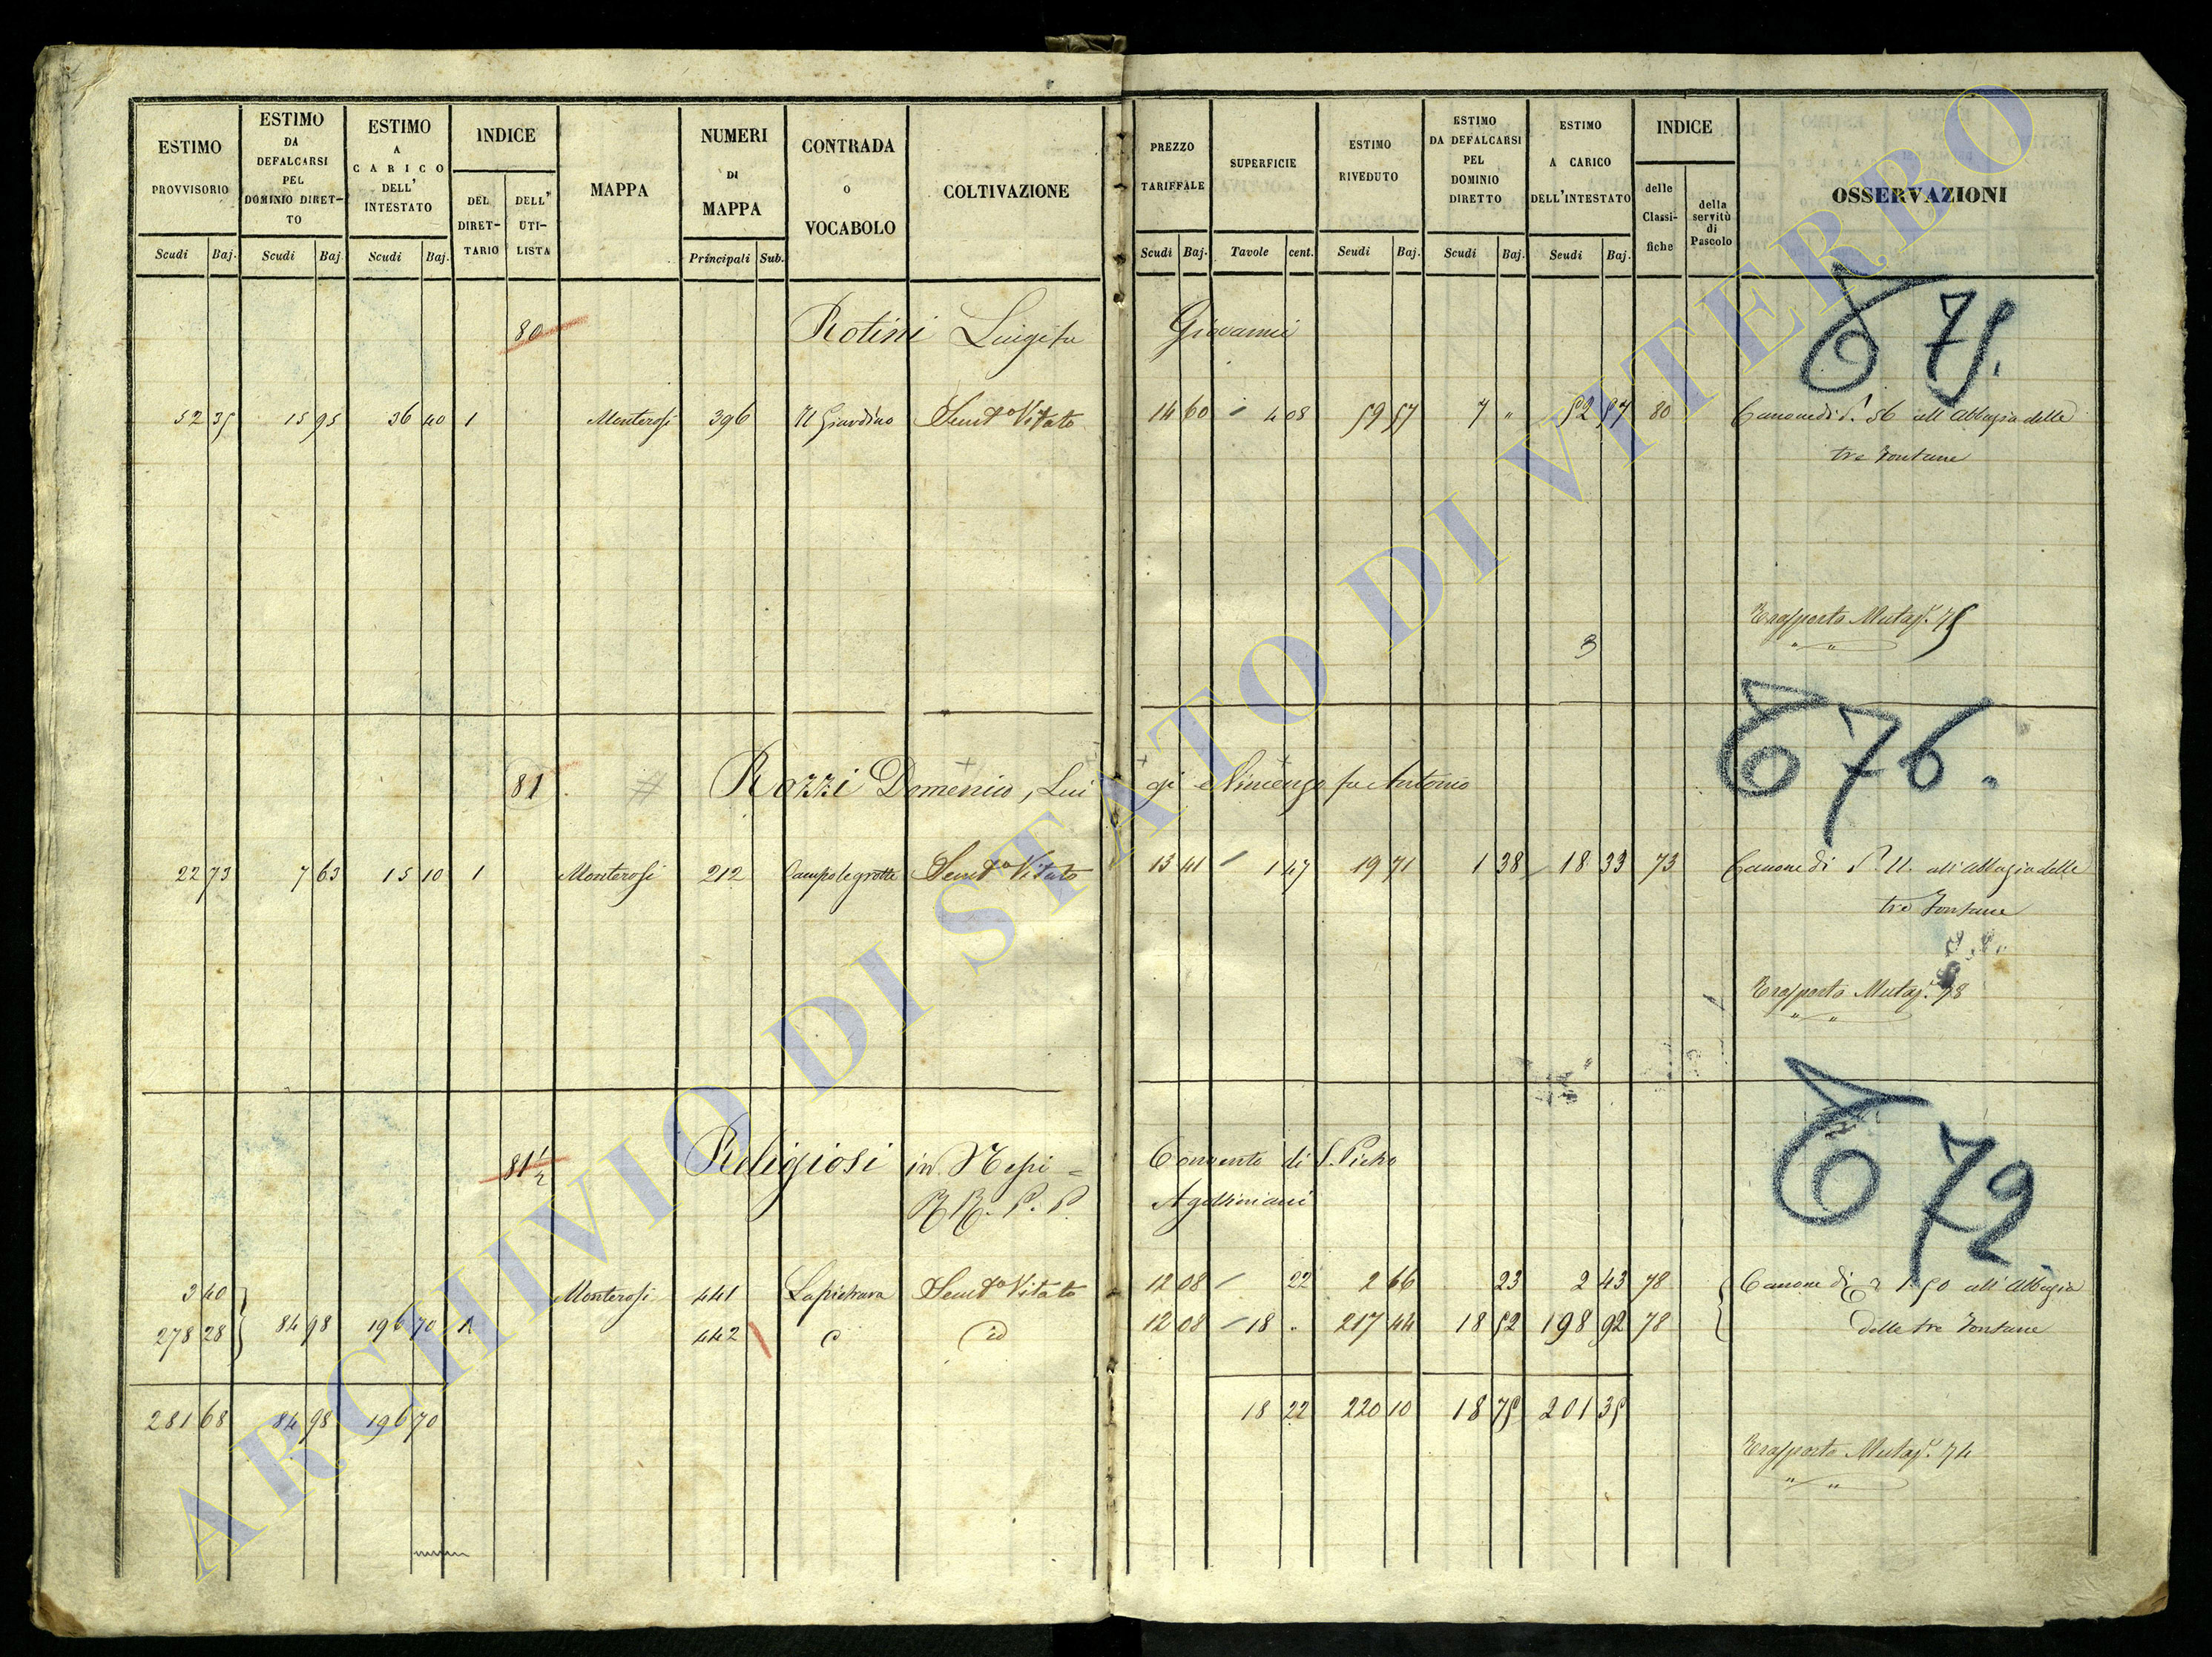 ESTIMO PROVVISORIO
ESTIMO DA DEFALCARSI PEL DOMINIO DIRETTO
ESTIMO A CARICO DELL' INTESTATO
INDICE
DEL DIRETTARIO
DELL' UTILISTA
MAPPA
NUMERI DI MAPPA
CONTRADA O VOCABOLO
COLTIVAZIONE
PREZZO TARIFFALE
SUPERFICIE
ESTIMO RIVEDUTO
ESTIMO DA DEFALCARSI PEL DOMINIO DIRETTO
ESTIMO A CARICO DELL'INTESTATO
INDICE
delle Classifiche
della servitù di Pascolo
OSSERVAZIONI
Scudi Baj. Scudi Baj Scudi Baj. Principali Sub.
Scudi Baj. Tavole cent. Scudi Baj. Scudi Baj. Scudi Baj.
80 Rotini Luigi fu Giovanni
675.
52 35 15 95 36 40 1 Monterosi 396 Il Giardino Semvo Vitato 14 60 4 08 59 57 7 " 52 57 80 Canone di all'Abbazia delle
tre Fontane
Trasporto Mutaz. 75
676.
81 Rozzi Domenico, Luigi e Vincenzo fu Antonio
22 73 7 63 15 10 1 Monterosi 212 Campo le grotte Semvo Vitato 13 41 1 47 19 71 1 38 18 33 73 Canone di all'Abbazia delle
tre Fontane
Trasporto Mutaz. 78
679
81 1/2 Religiosi in Nepi = Convento di S. Pietro
RR. P. P. Agostiniani
3 40 Monterosi 441 La pietrara Semvo Vitato 12 08 22 2 66 23 2 43 78 Canone di all'Abbazia
278 28 84 98 196 70 1 442 id 12 08 18 . 217 44 18 52 198 92 78 delle tre Fontane
281 68 84 98 196 70 18 22 220 10 18 75 201 35
Trasporto Mutaz. 74
ARCHIVIO DI STATO DI VITERBO